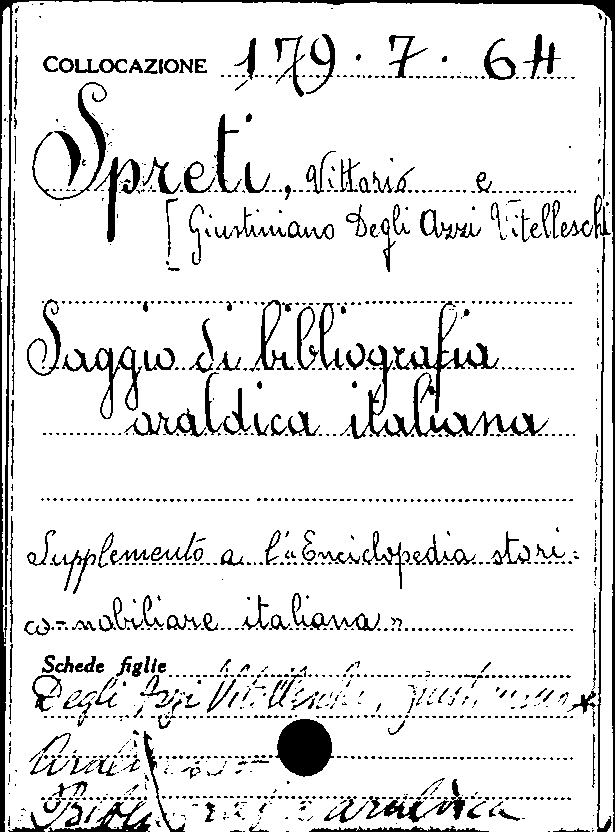 COLLOCAZIONE 179.7.64
Spreti, Vittorio e
[Giustiniano Degli Azzi Vitelleschi
Saggio di bibliografia
araldica italiana
Supplemento a l'"Enciclopedia stori=
co-nobiliare italiana"
Schede figlie
Degli Azzi Vitelleschi, Giustiniano
Bibliografia araldica